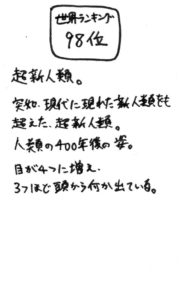 世界ランキング
98位
超新人類。
突如、現代に現れた新人類をも
超えた、超新人類。
人類の400年後の姿。
目が4つに増え、
3つほど頭から何か出ている。